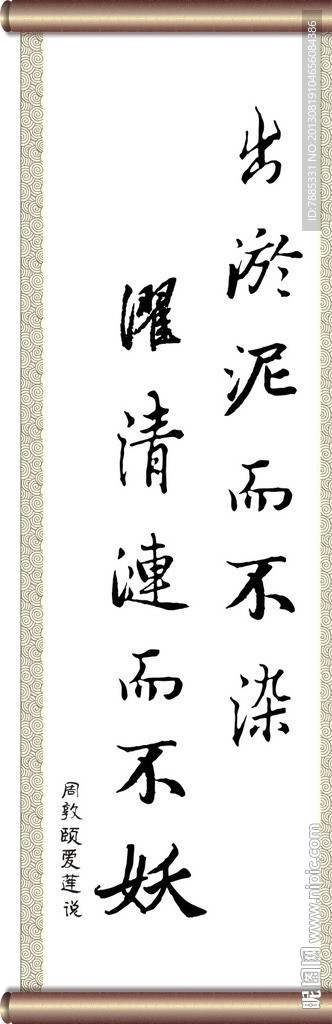 出淤泥而不染
濯清涟而不妖
周敦颐爱莲说
ID:7885331 NO:20130819104656084386
昵图网 www.nipic.com